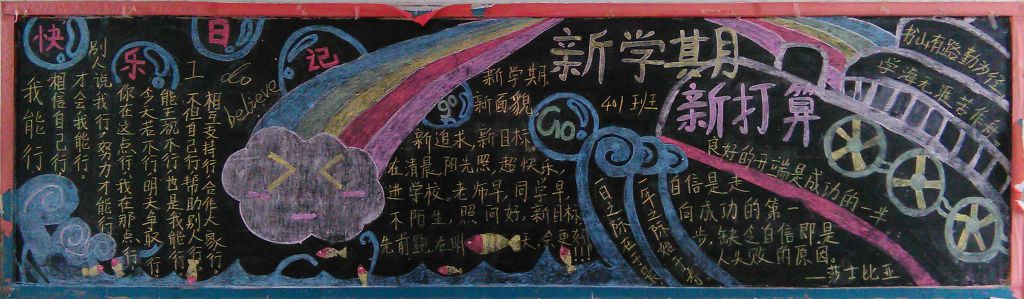 快
乐
日
记
我能行
相信自己行,
才会我能行
别人说我行,努力才能行
你在这点行,我在那点行。
今天若不行,明天争取行。
能正视不行,也是我能行。
不但自己行,帮助别人行。
相互支持行,合作大家行。
I
do
believe
新学期
新打算
新学期
新面貌
401班
go
Go!
新追求,新目标,
在清晨,阳光照,趁快乐,
进学校,老师早,同学早,
不陌生,照问好。新目标
先前跑,在明天,会更好!!!
书山有路勤为径
学海无涯苦作舟
良好的开端是成功的一半
自信是走
向成功的第一
步,缺乏自信即是
人失败的原因。
——莎士比亚
一日之际在于晨
一年之际在于春